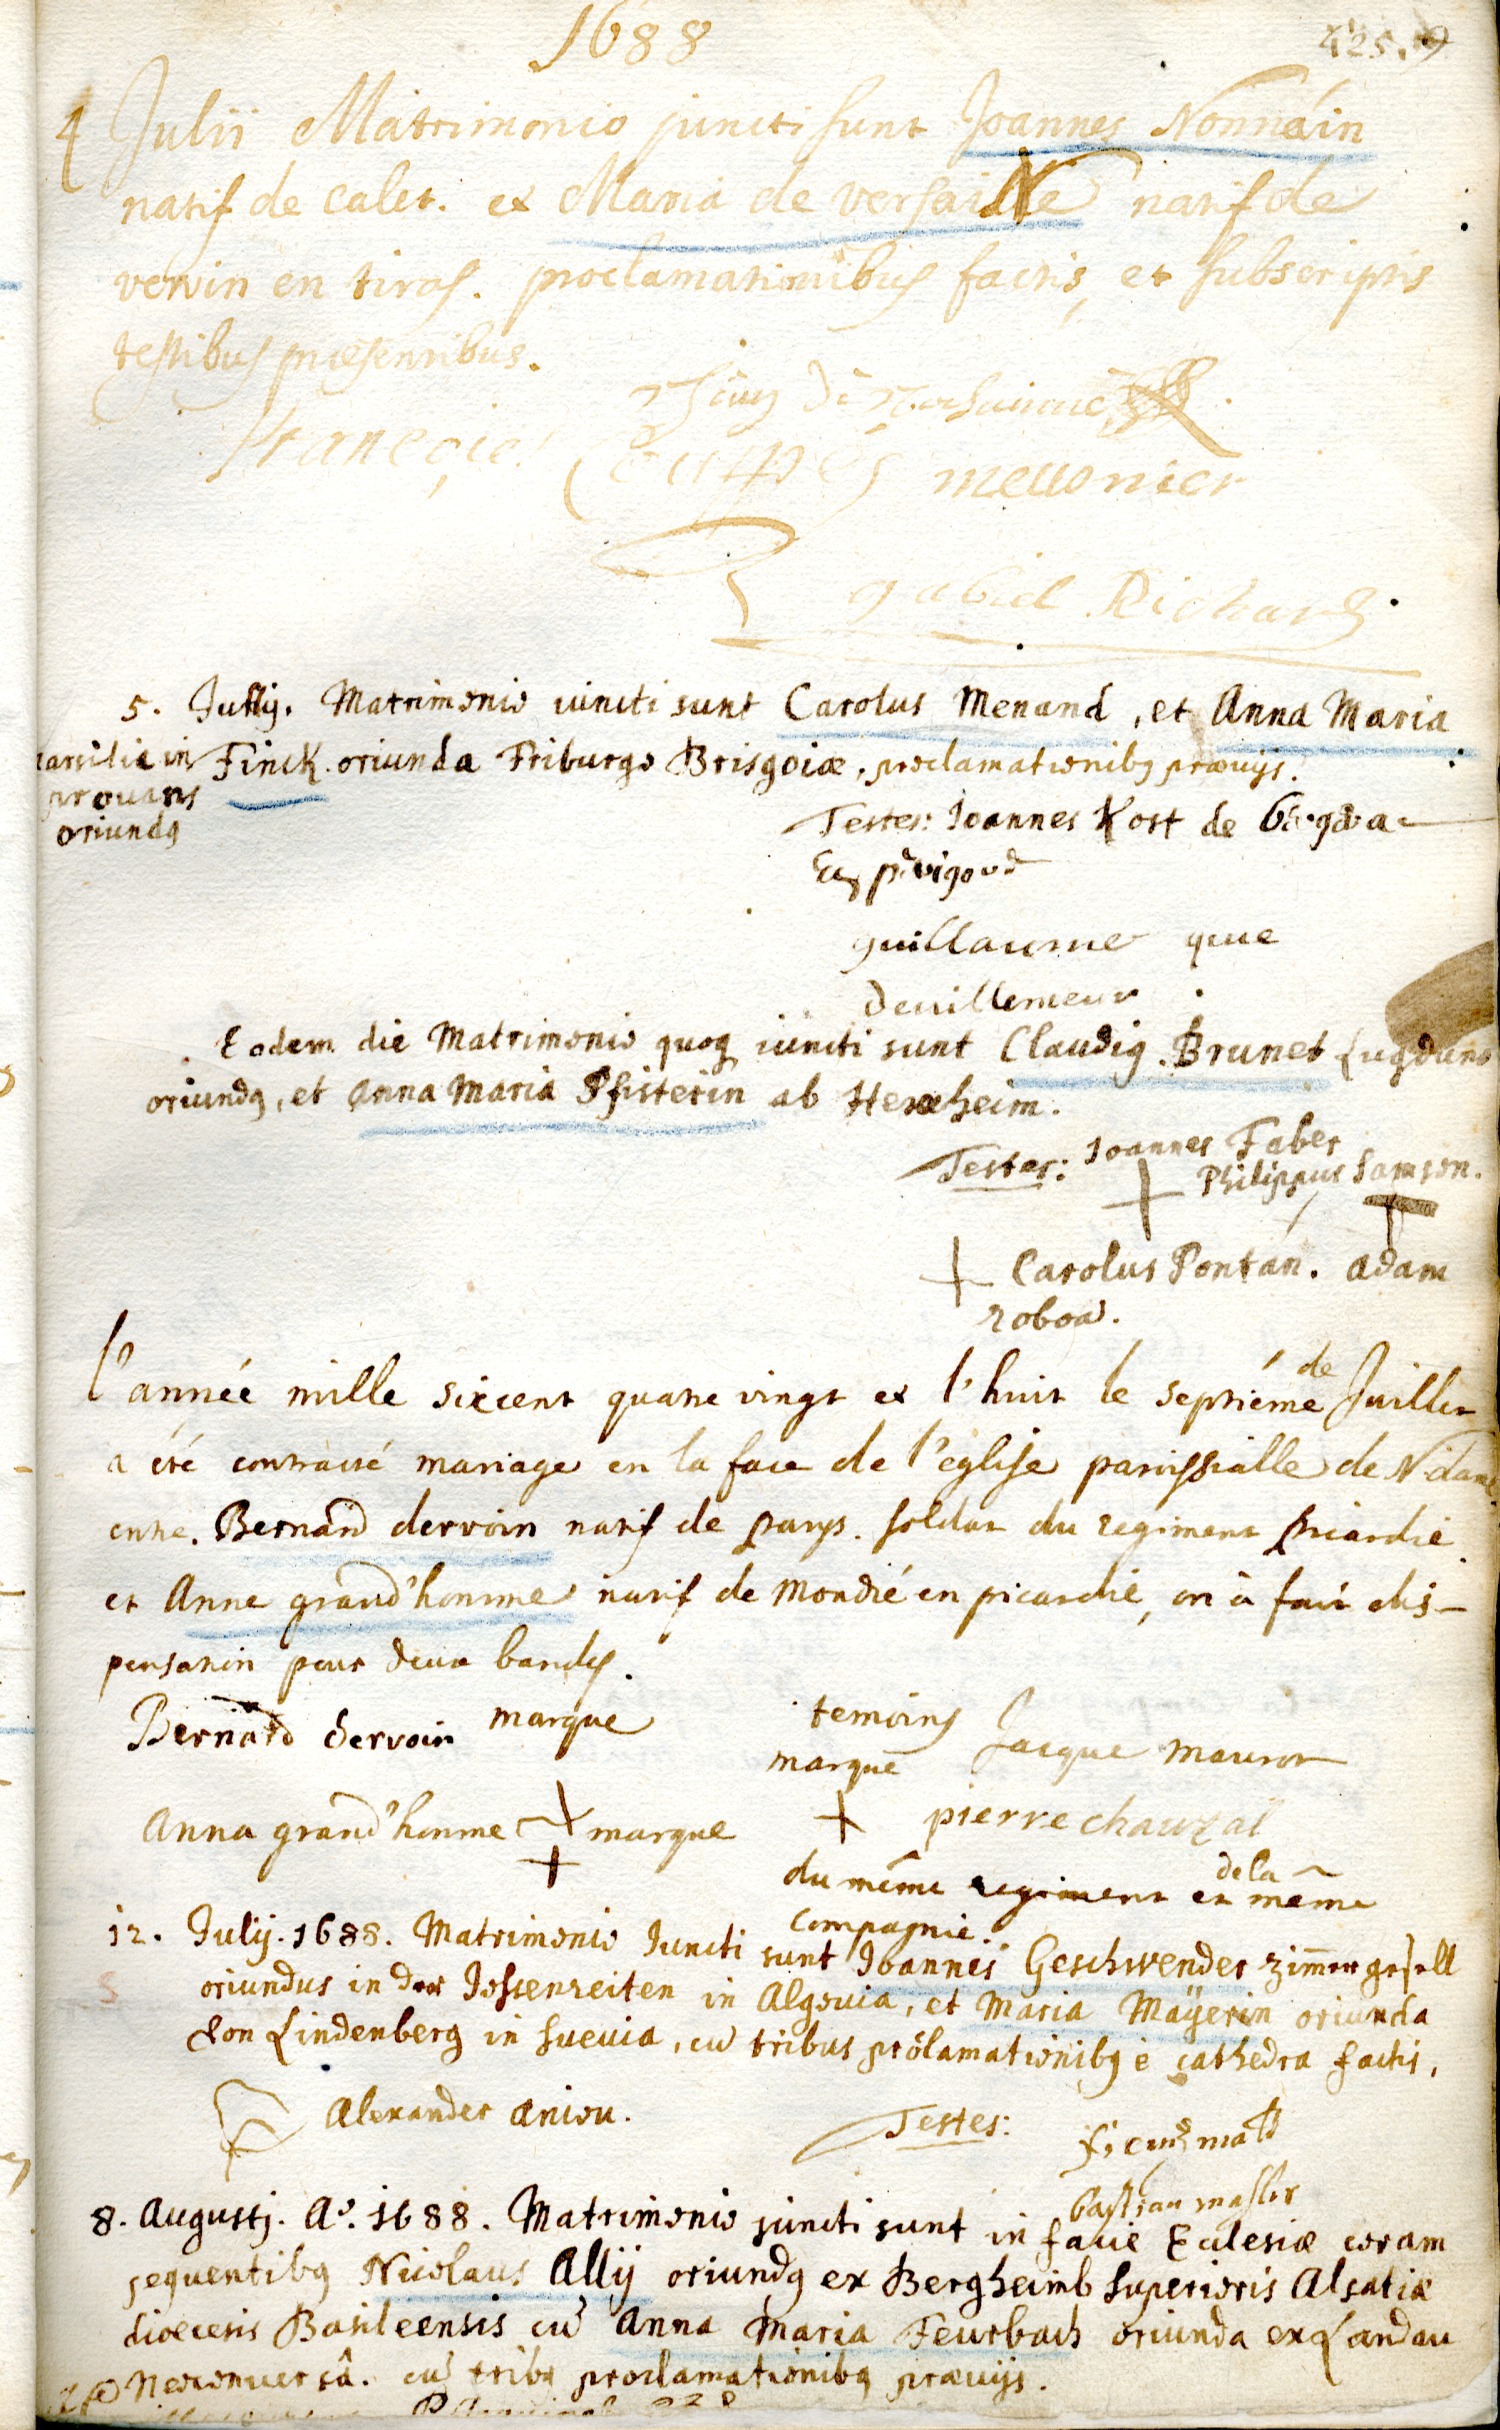 1688
4 Julii Matrimonio juncti sunt Joannes Nonnain
natif de calet. et Maria de versaille natif de
vervin en tiras. proclamationibus factis, et subscriptis
testibus præsentibus.
meusnier
gabriel Richard
5. Julij. Matrimonio iuncti sunt Carolus Menand, et Anna Maria
Finck. oriunda Friburgo Brisgoiæ, proclamationibꝫ præuijs.
prouans
oriundꝫ
Testes: Joannes Kost de
guillaume que
deuillemeur
Eodem die Matrimonio quoqꝫ iuncti sunt Claudiꝫ. Brunet Lugduno
oriundꝫ, et Anna Maria Pfisterin ab Herxheim.
Testes: Joannes Faber
Philippus Samson.
Carolus Pontan. Adam
roboa.
l'année mille sixcent quatre vingt et l'huit le septiéme de Juillet
a été contracté mariage en la face de l'église paroissialle de N dame
entre. Bernard dervoin natif de parys. soldat du regiment picardie
et Anne grand'homme natif de Mondié en picardie, on à fait dis-
pensation pour deux bandes.
Bernard dervoin marque
temoins Jacque mauron
marque
Anna grand'homme marque
pierre chauzal
du même regiment et de la même
compagnie.
12. Julij. 1688. Matrimonio Juncti sunt Joannes Geschwender zim̄er gesell
oriundus in der Jossenreiten in Algouia, et Maria Mäyerin oriunda
von Lindenberg in Sueuia, cū tribus proclamationibꝫ è cathedra factis,
Alexander Aniou.
Testes:
8. Augustj. Aº. 1688. Matrimonio juncti sunt in facie Ecclesiæ coram
sequentibꝫ Nicolaus Allij oriundꝫ ex Bergheimb Superioris Alsatiæ
dioecesis Basileensis cū Anna Maria Feurbach oriunda ex Landau
Neoconuersâ. cū tribꝫ proclamationibꝫ præuijs.